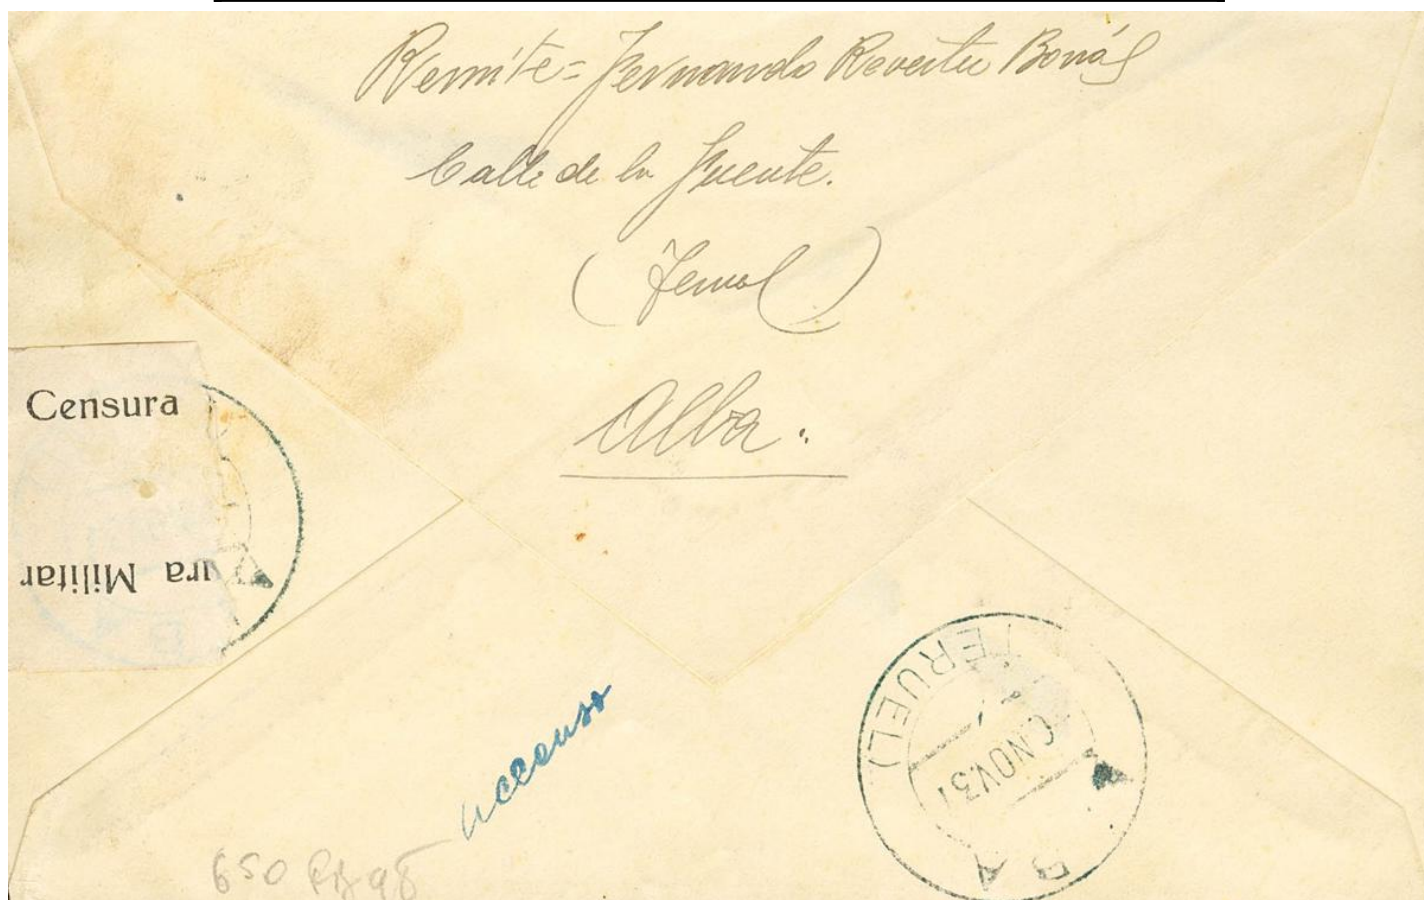 Remite = Fernando Reverter Bonás
Calle de la Fuente.
(Teruel)
Alba.
Censura
ura Militar
(TERUEL)
NOV.37
BA
650